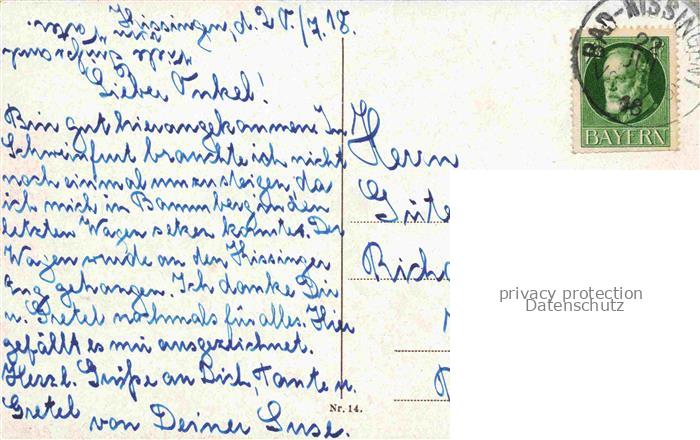 Kissingen, d. 20./7.18.
Lieber Onkel!
Bin gut hier angekommen. In
Schweinfurt brauchte ich nicht
noch einmal umzusteigen, da
ich mich in Bamberg in den
letzten Wagen setzen konnte. Der
Wagen wurde an den Kissinger
Zug gehangen. Ich danke Dir
u. Gretel nochmals für alles. Hier
gefällt es mir ausgezeichnet.
Herzl. Grüße an Dich, Tante u.
Gretel von Deiner Suse.
Nr. 14.
Herrn
Güte
Rich
BAD-KISSINGEN 1
BAYERN
privacy protection
Datenschutz